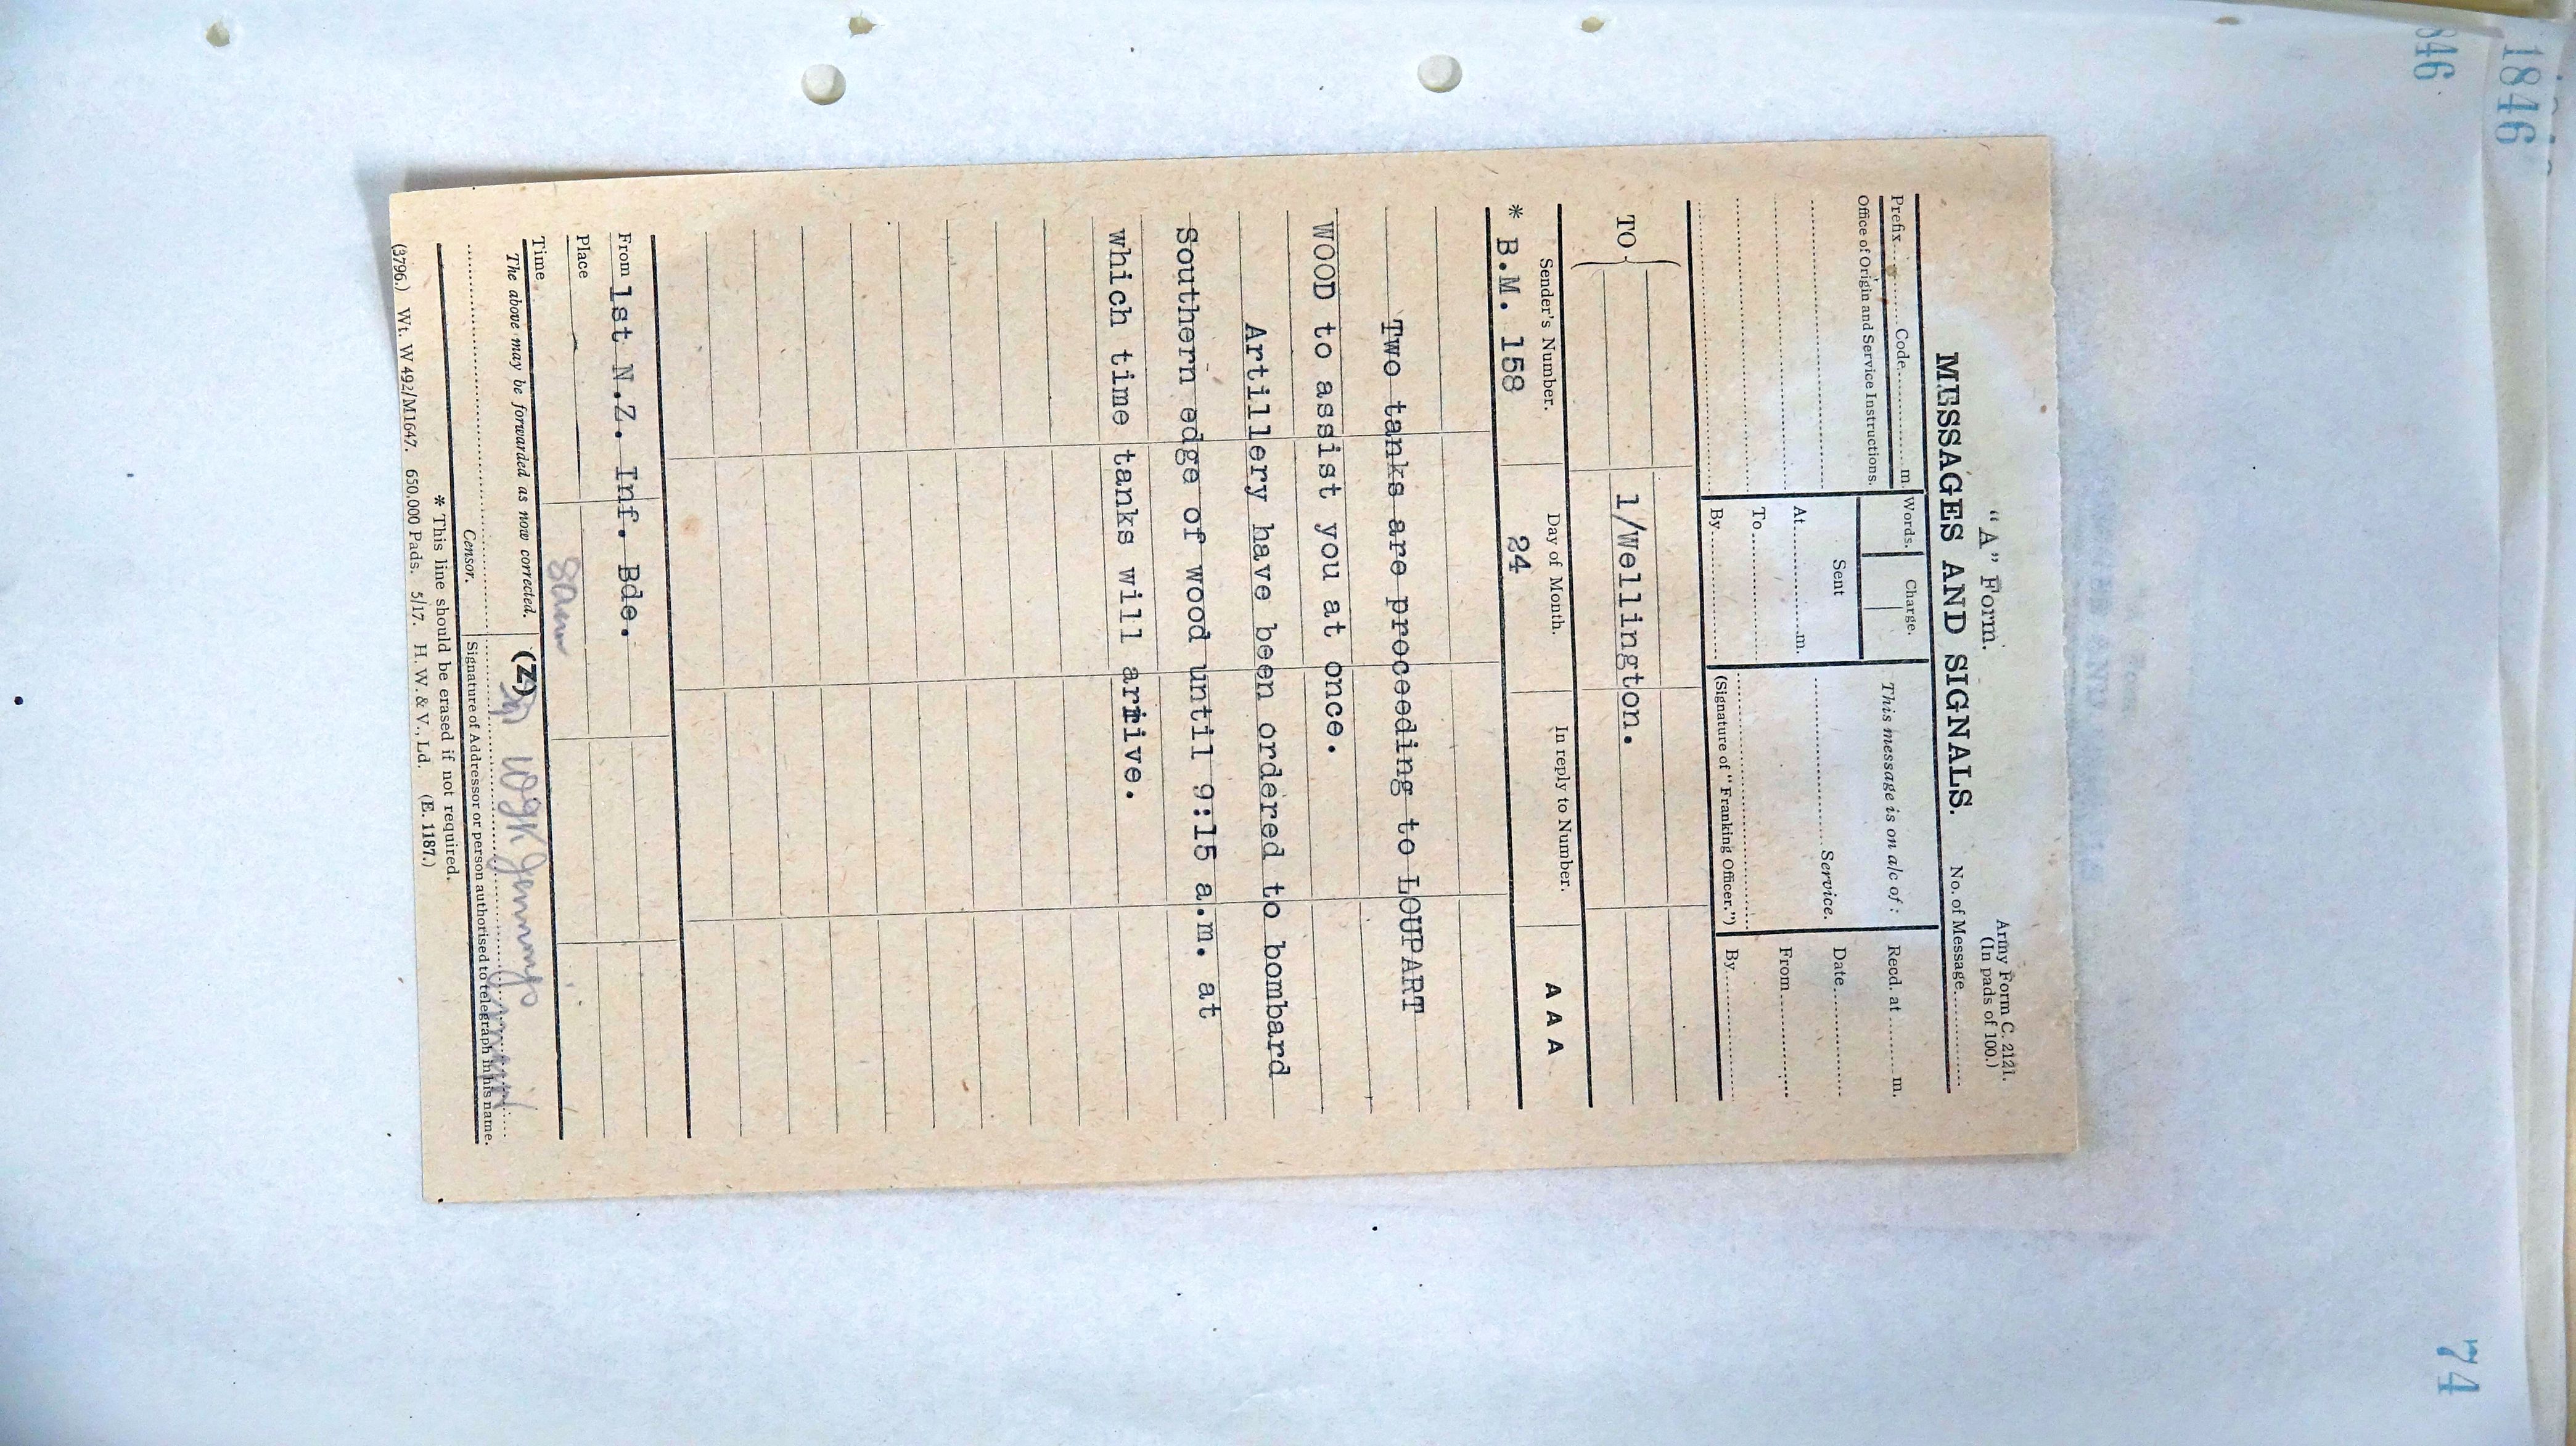 1846
46
74
"A" Form.
Army Form C. 2121.
(In pads of 100.)
MESSAGES AND SIGNALS.
No. of Message............
Prefix............ Code............ m.
Words.
Charge.
This message is on a/c of:
Recd. at ............ m.
Office of Origin and Service Instructions.
Sent
............ Service.
Date............
At............ m.
From............
To............
By............
(Signature of "Franking Officer.")
By............
TO
1/Wellington.
Sender's Number.
Day of Month.
In reply to Number.
A A A
* B.M. 158
24
Two tanks are proceeding to LOUPART
WOOD to assist you at once.
Artillery have been ordered to bombard
Southern edge of wood until 9:15 a.m. at
which time tanks will arrive.
From 1st N.Z. Inf. Bde.
Place
Time
8am
The above may be forwarded as now corrected.
(Z)
Censor.
Signature of Addressor or person authorised to telegraph in his name.
* This line should be erased if not required.
(3796.) Wt. W 492/M1647. 650,000 Pads. 5/17. H. W. & V., Ld. (E. 1187.)